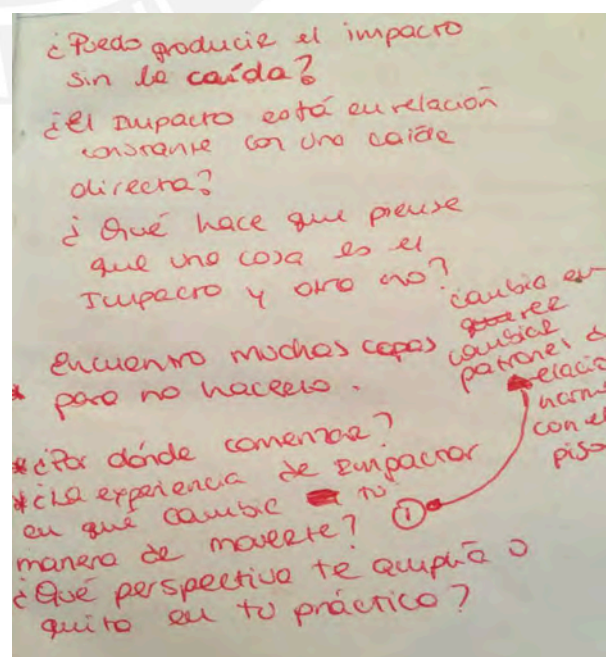 ¿Puedo producir el impacto
sin la caída?
¿El Impacto está en relación
constante con una caída
directa?
¿Qué hace que piense
que una cosa es el
Impacto y otra no?
Encuentro muchas capas
* para no hacerlo.
*¿Por dónde comenzar?
*¿La experiencia de Impactar
en qué cambia tu
manera de moverte? ①
¿Qué perspectiva te amplía o
quita en tu práctica?
cambia en
cambiar
patrones
con el
piso